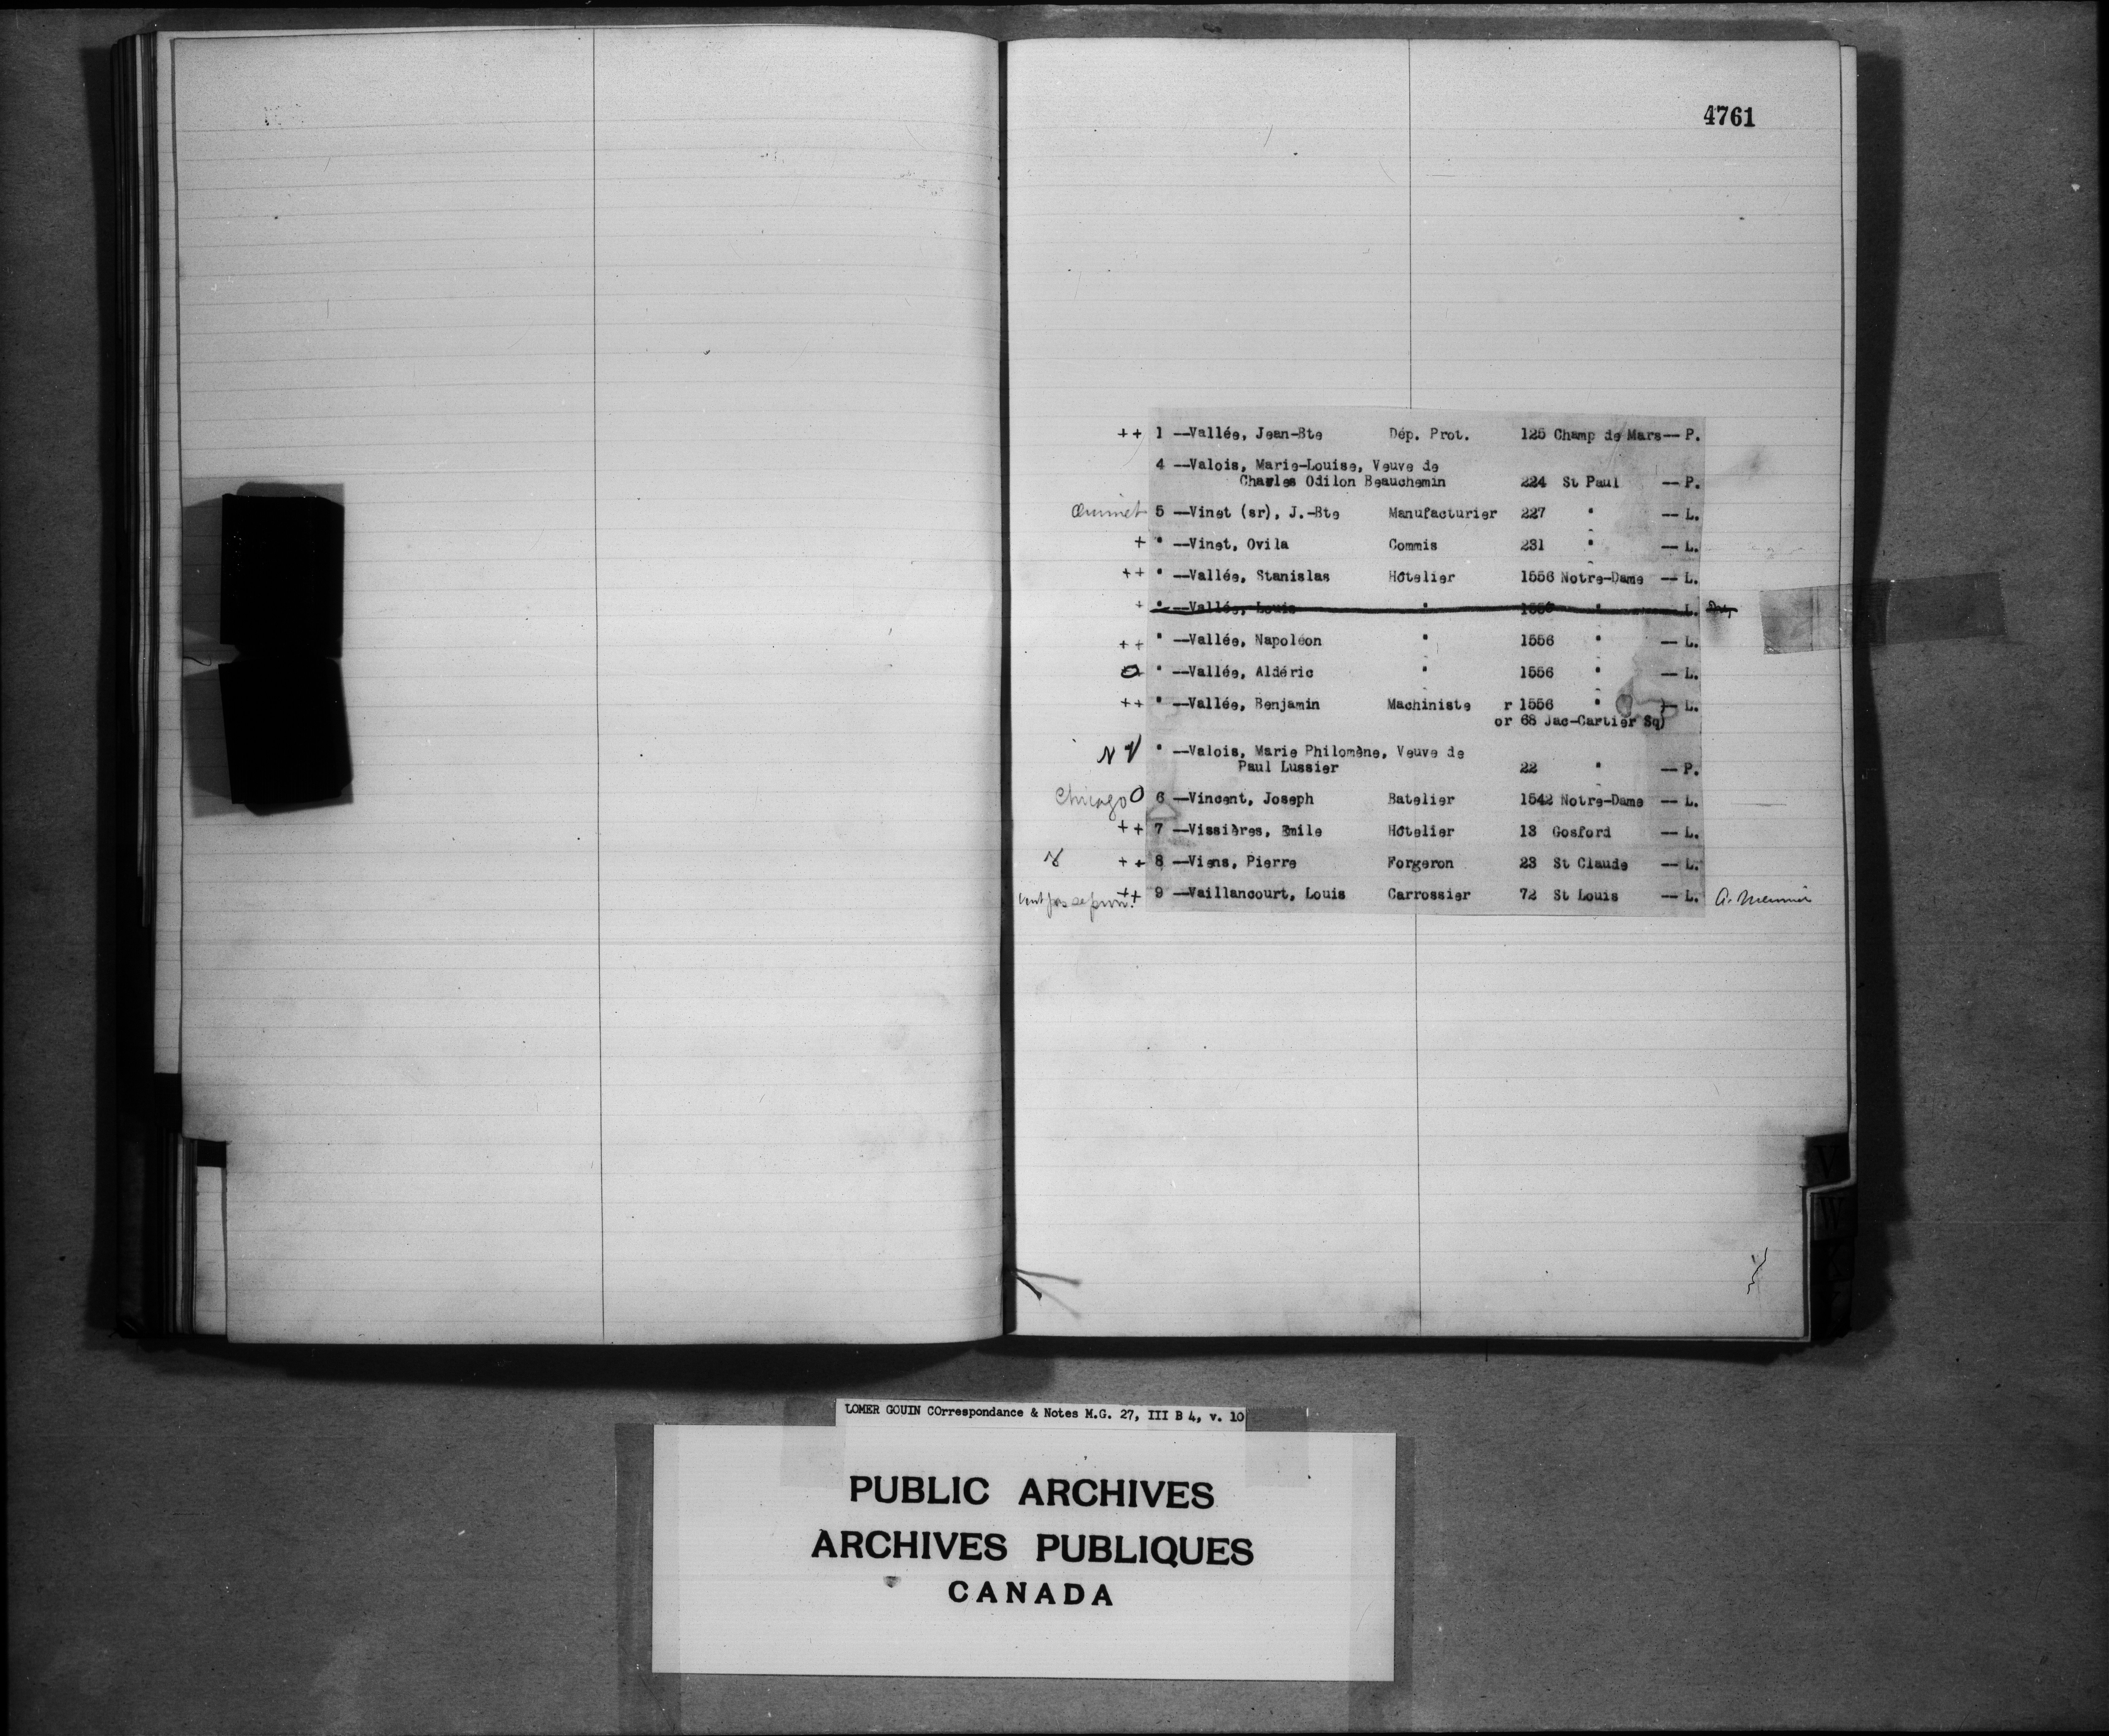 4761
++ 1 —Vallée, Jean-Bte Dép. Prot. 125 Champ de Mars— P.
4 —Valois, Marie-Louise, Veuve de
Charles Odilon Beauchemin 224 St Paul — P.
Ouimet 5 —Vinet (sr), J.-Bte Manufacturier 227 " — L.
+ " —Vinet, Ovila Commis 231 " — L.
++ " —Vallée, Stanislas Hôtelier 1556 Notre-Dame — L.
+ " —Vallée, Louis " 1556 " — L.
++ " —Vallée, Napoléon " 1556 " — L.
O " —Vallée, Aldéric " 1556 " — L.
++ " —Vallée, Benjamin Machiniste r 1556 " )— L.
or 68 Jac-Cartier Sq)
N V " —Valois, Marie Philomène, Veuve de
Paul Lussier 22 " — P.
Chicago O 6 —Vincent, Joseph Batelier 1542 Notre-Dame — L.
++ 7 —Vissières, Emile Hôtelier 13 Gosford — L.
++ 8 —Viens, Pierre Forgeron 23 St Claude — L.
++ 9 —Vaillancourt, Louis Carrossier 72 St Louis — L. A. Meunier
V
W
X
LOMER GOUIN COrrespondance & Notes M.G. 27, III B 4, v. 10
PUBLIC ARCHIVES
ARCHIVES PUBLIQUES
CANADA